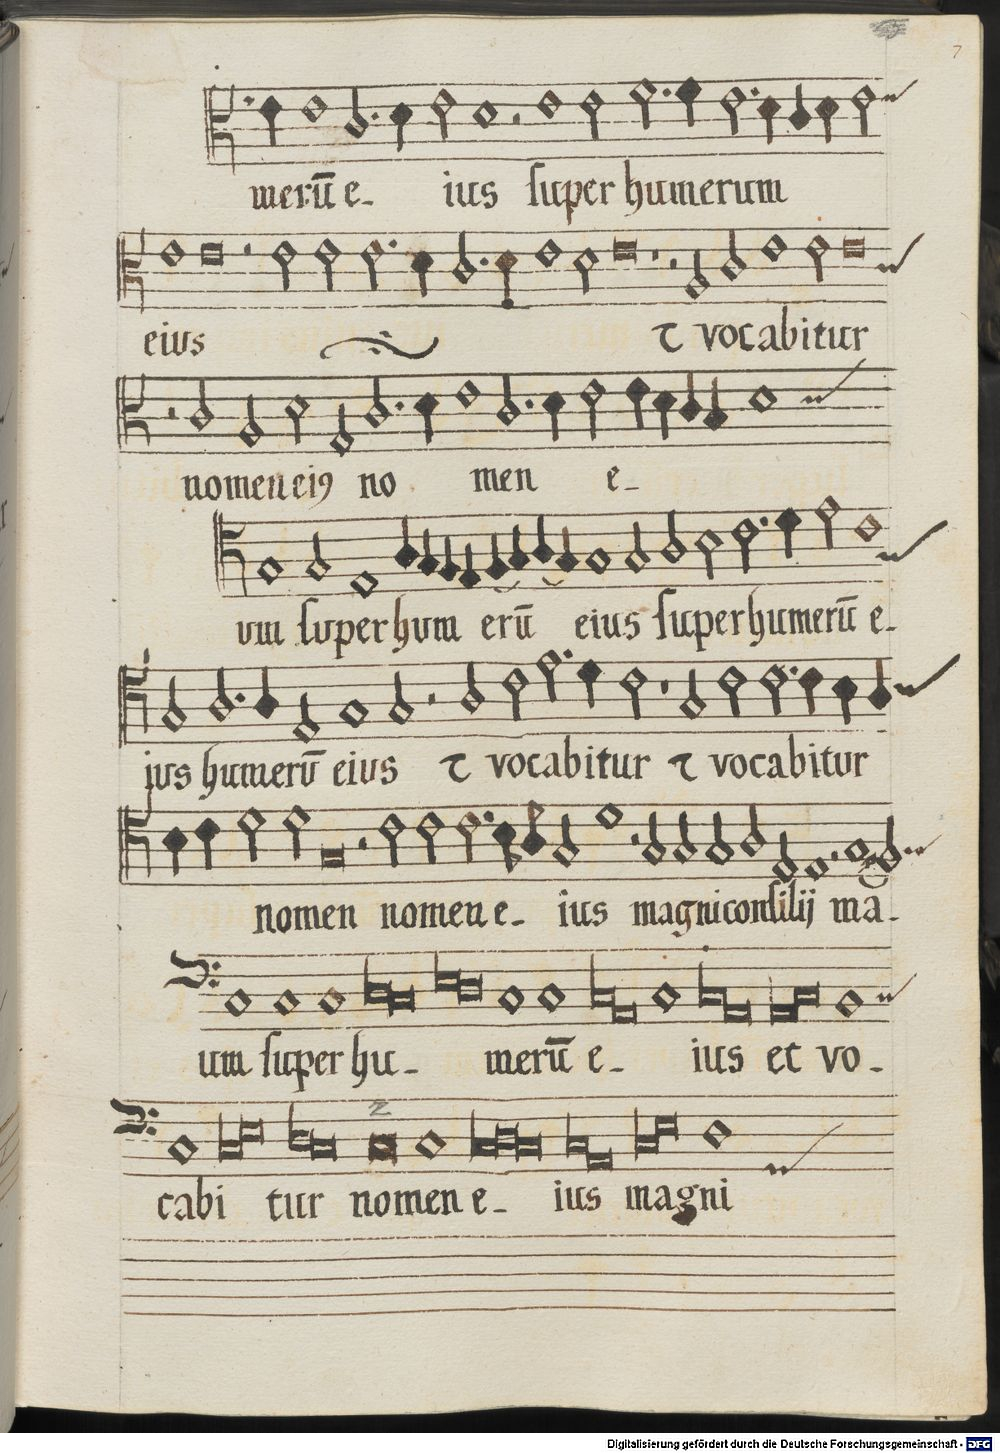 7
merū e_ ius super humerum
eius ⁊ vocabitur
nomen eiꝰ no men e_
um super hum erū eius super humerū e_
ius humerū eius ⁊ vocabitur ⁊ vocabitur
nomen nomen e_ ius magni consilij ma_
um super hu_ merū e_ ius et vo_
z
cabi tur nomen e_ ius magni
Digitalisierung gefördert durch die Deutsche Forschungsgemeinschaft - DFG